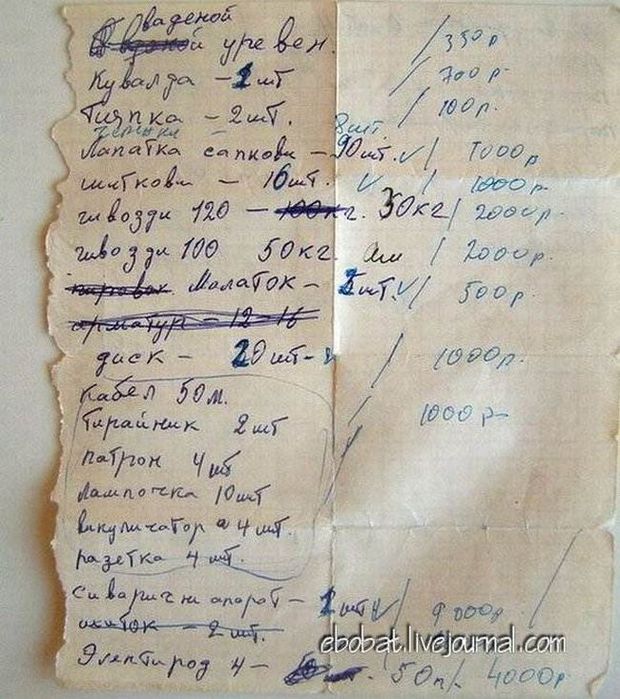 ваденой
уревен. / 350р
Кувалда – 2 шт / 700р
Тияпка – 2 шт. / 100р.
черенки – 8 шт.
Лапатка сапкови – 10 шт. ✓ / 1000р
шиткови – 16 шт. ✓ / 1000р
гивозди 120 – 100кг. 30кг / 2000р
гивозди 100 50кг. / 2000р.
Малаток – шт. ✓ / 500р
арматур – 12 – 16
диск – 20 шт – / 1000р.
кабел 50 м.
Тирайник 2 шт / 1000р
патрон 4 шт
Лампочка 10 шт
викуличатор 4 шт.
разетка 4 шт.
сиваричи апарот – шт ✓ / 9000р
– 2 шт.
Электирод 4 – 50п / 4000р
ebobat.livejournal.com